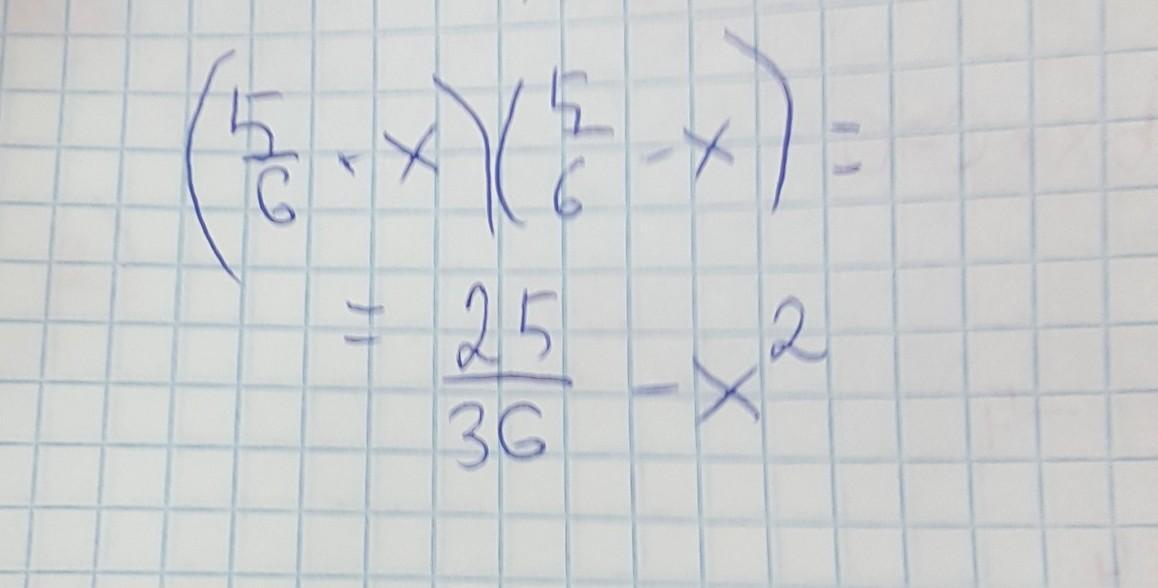 (5/6 · x)(5/6 - x) =
= 25/36 - x²